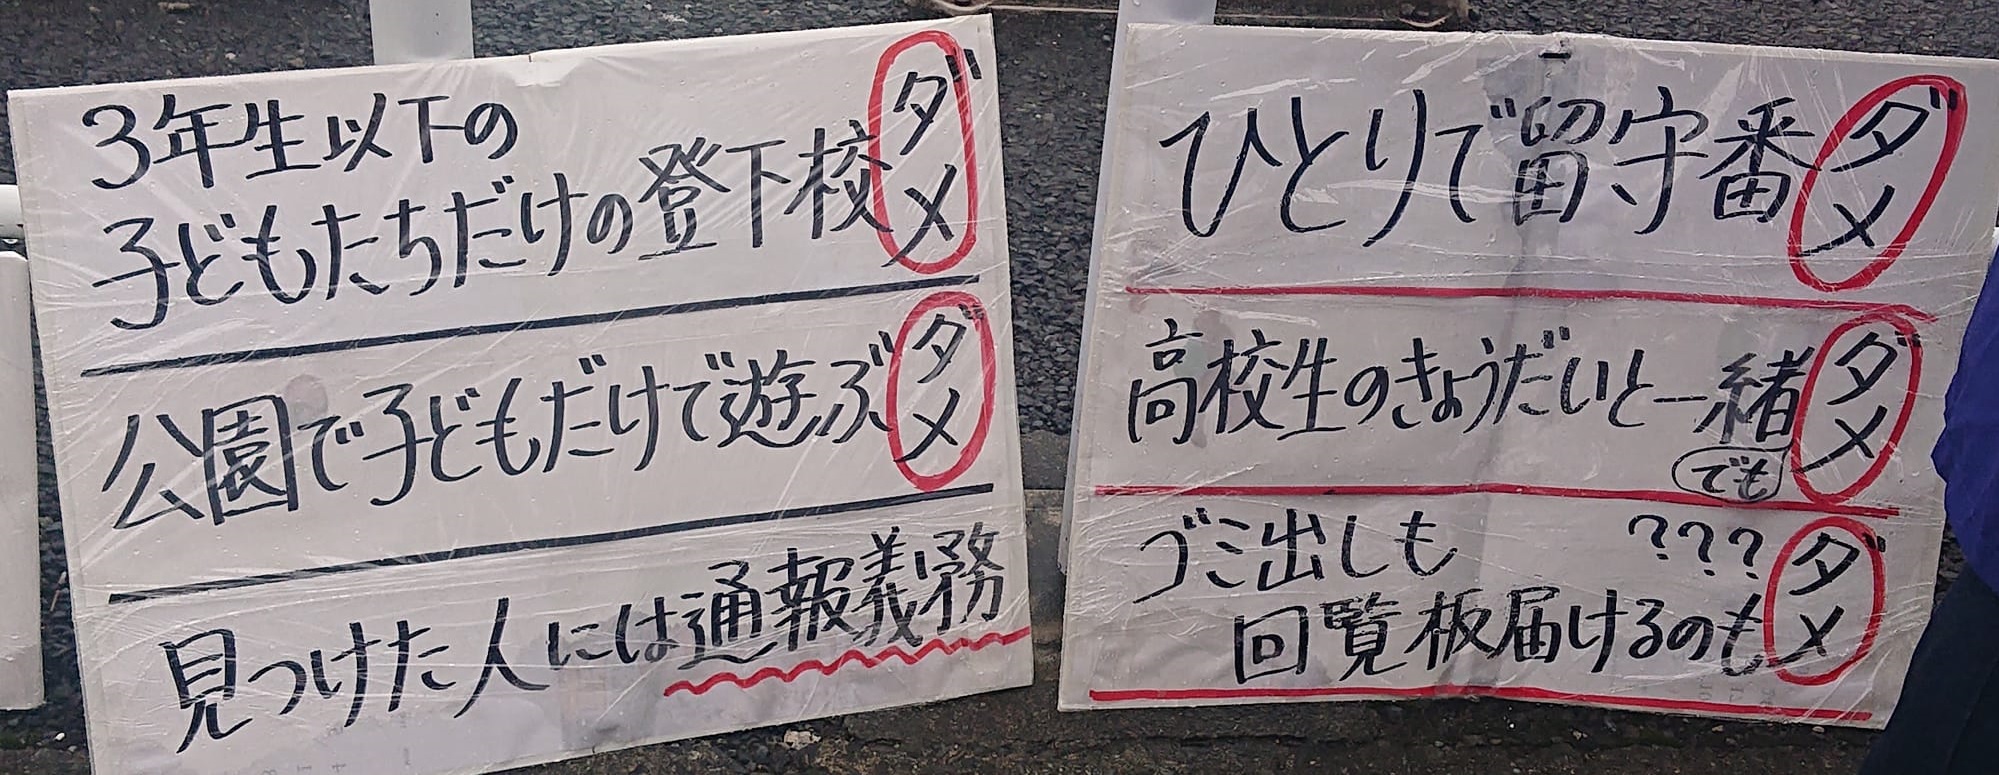 3年生以下の
子どもたちだけの登下校ダメ
公園で子どもだけで遊ぶダメ
見つけた人には通報義務
ひとりで留守番ダメ
高校生のきょうだいと一緒でもダメ
ゴミ出しも???
回覧板届けるのもダメ